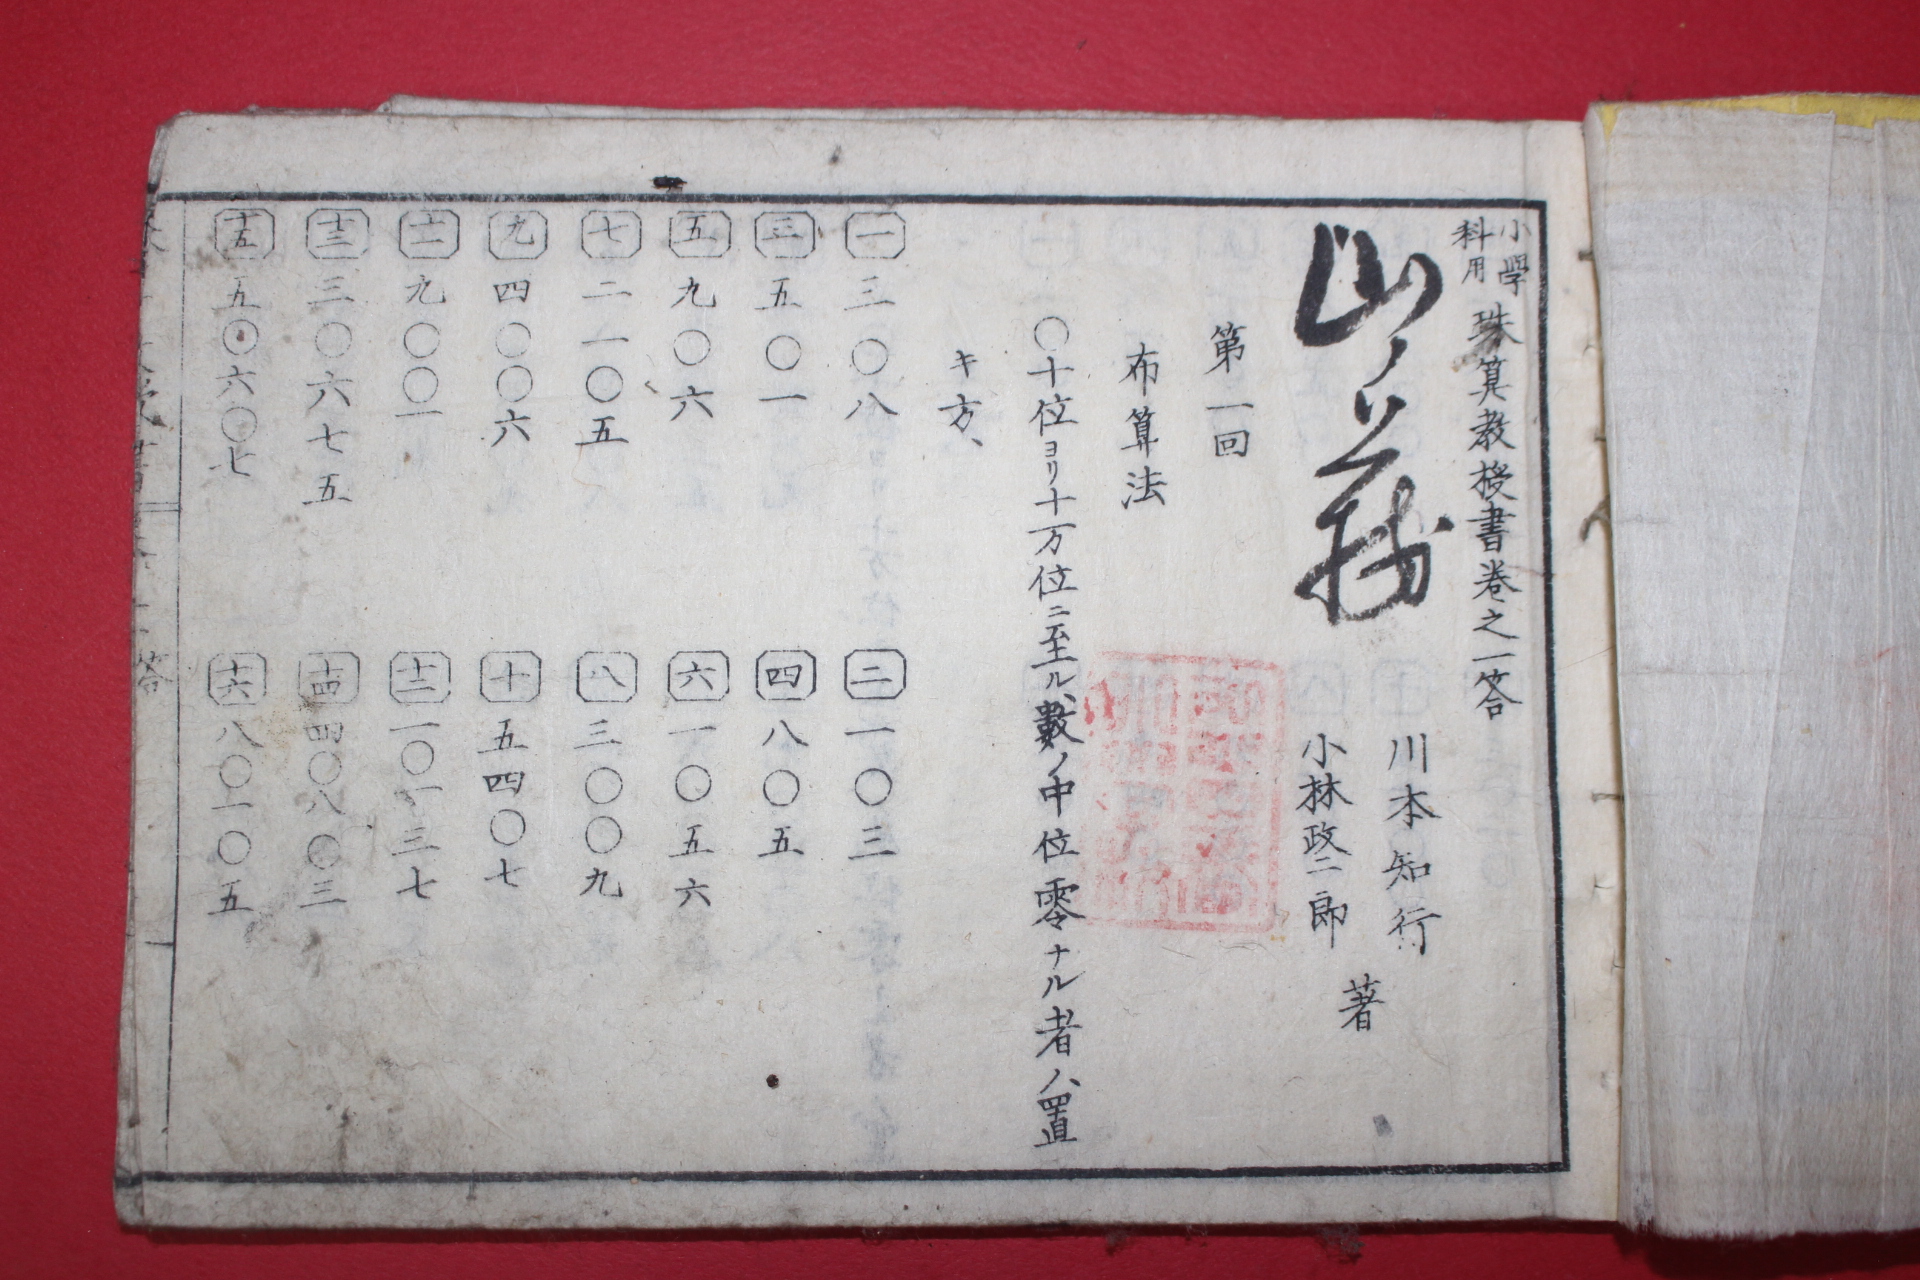 小學
科用
珠算教授書巻之一答
川本知行
小林政二郎
著
第一回
布算法
〇十位ヨリ十万位ニ至ル、數ノ中位零ナル者ノ置
キ方、
一 三〇八
二 一〇三
三 五〇一
四 八〇五
五 九〇六
六 一〇五六
七 二一〇五
八 三〇〇九
九 四〇〇六
十 五四〇七
十一 九〇〇一
十二 一〇一三七
十三 三〇六七五
十四 四〇八〇三
十五 五〇六〇七
十六 八〇一〇五